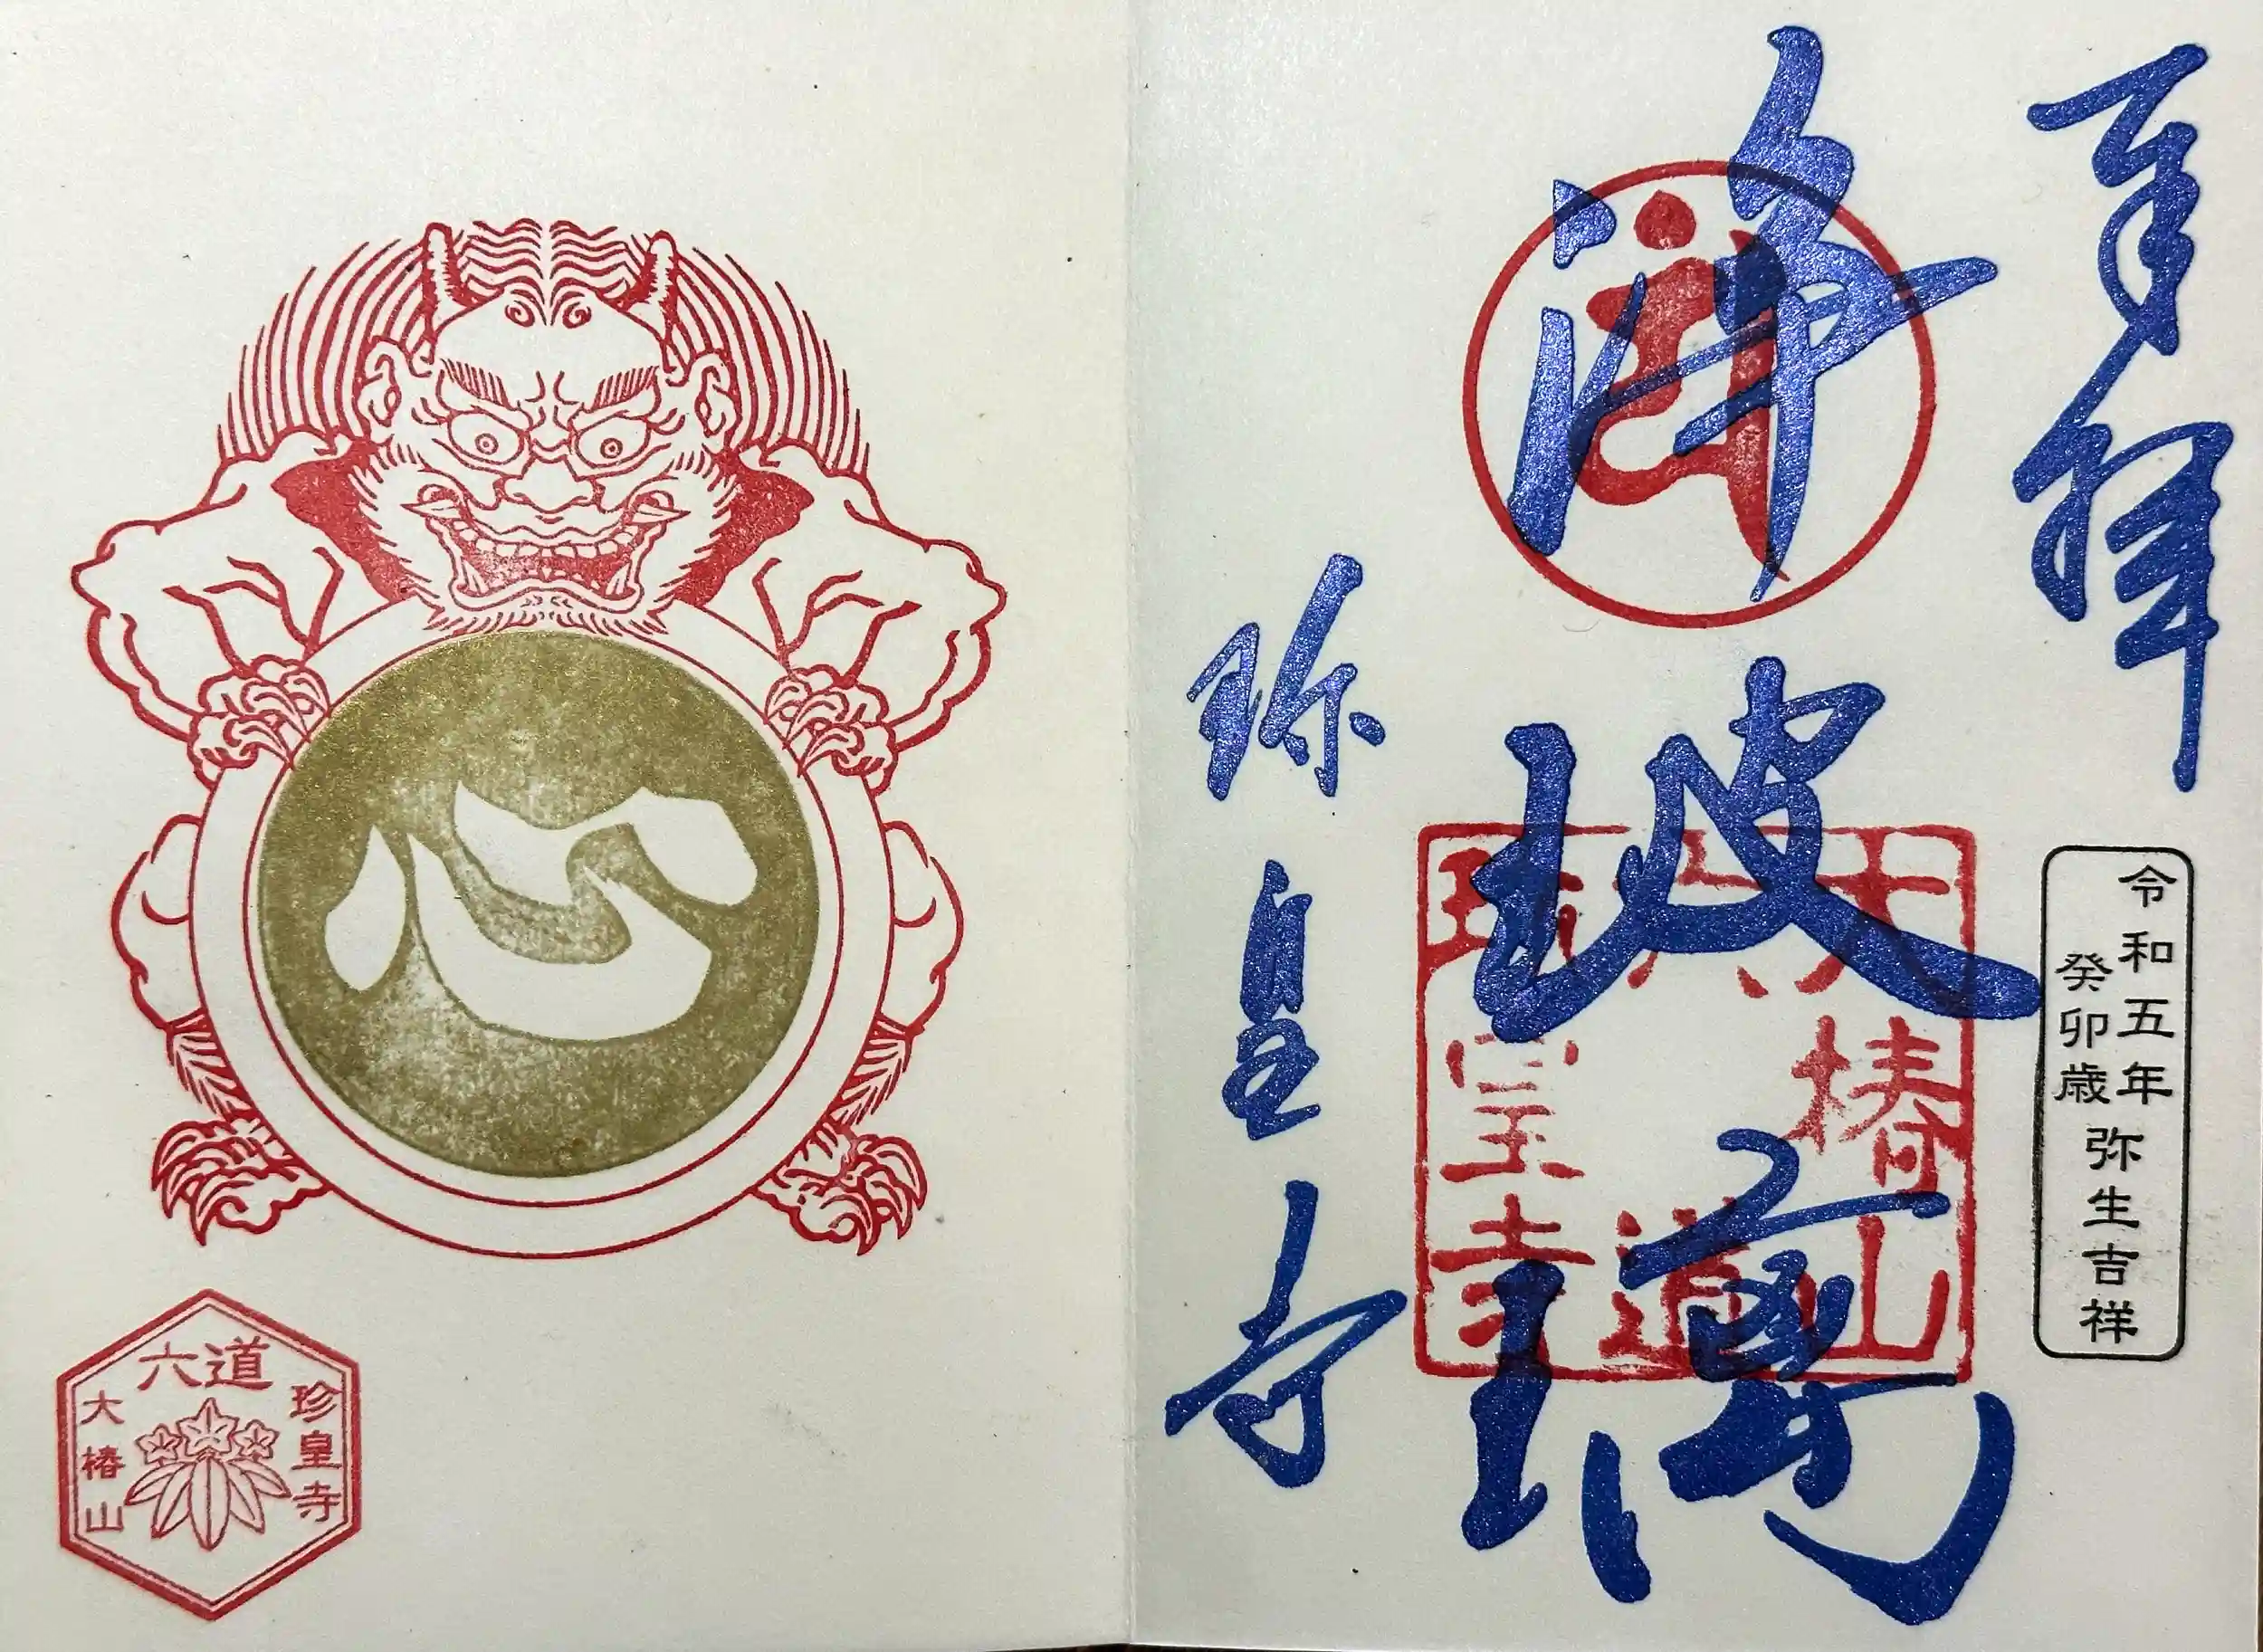 奉拝
令和五年
癸卯歳
弥生吉祥
浄玻璃
大椿山
六道
珎皇寺
珎皇寺
心
六道
珍皇寺
大椿山